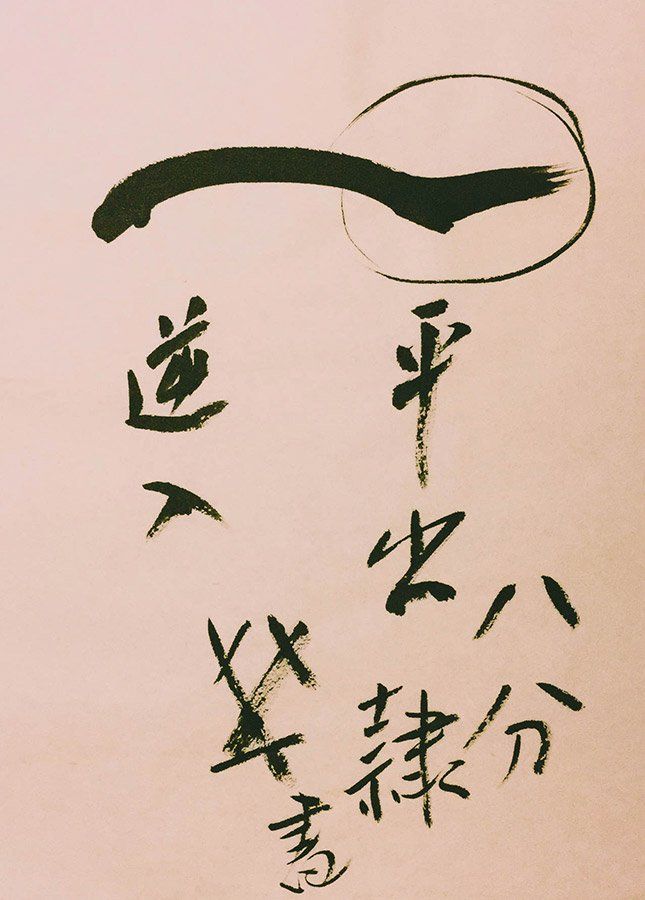 逆入
平出
八分
隷
書